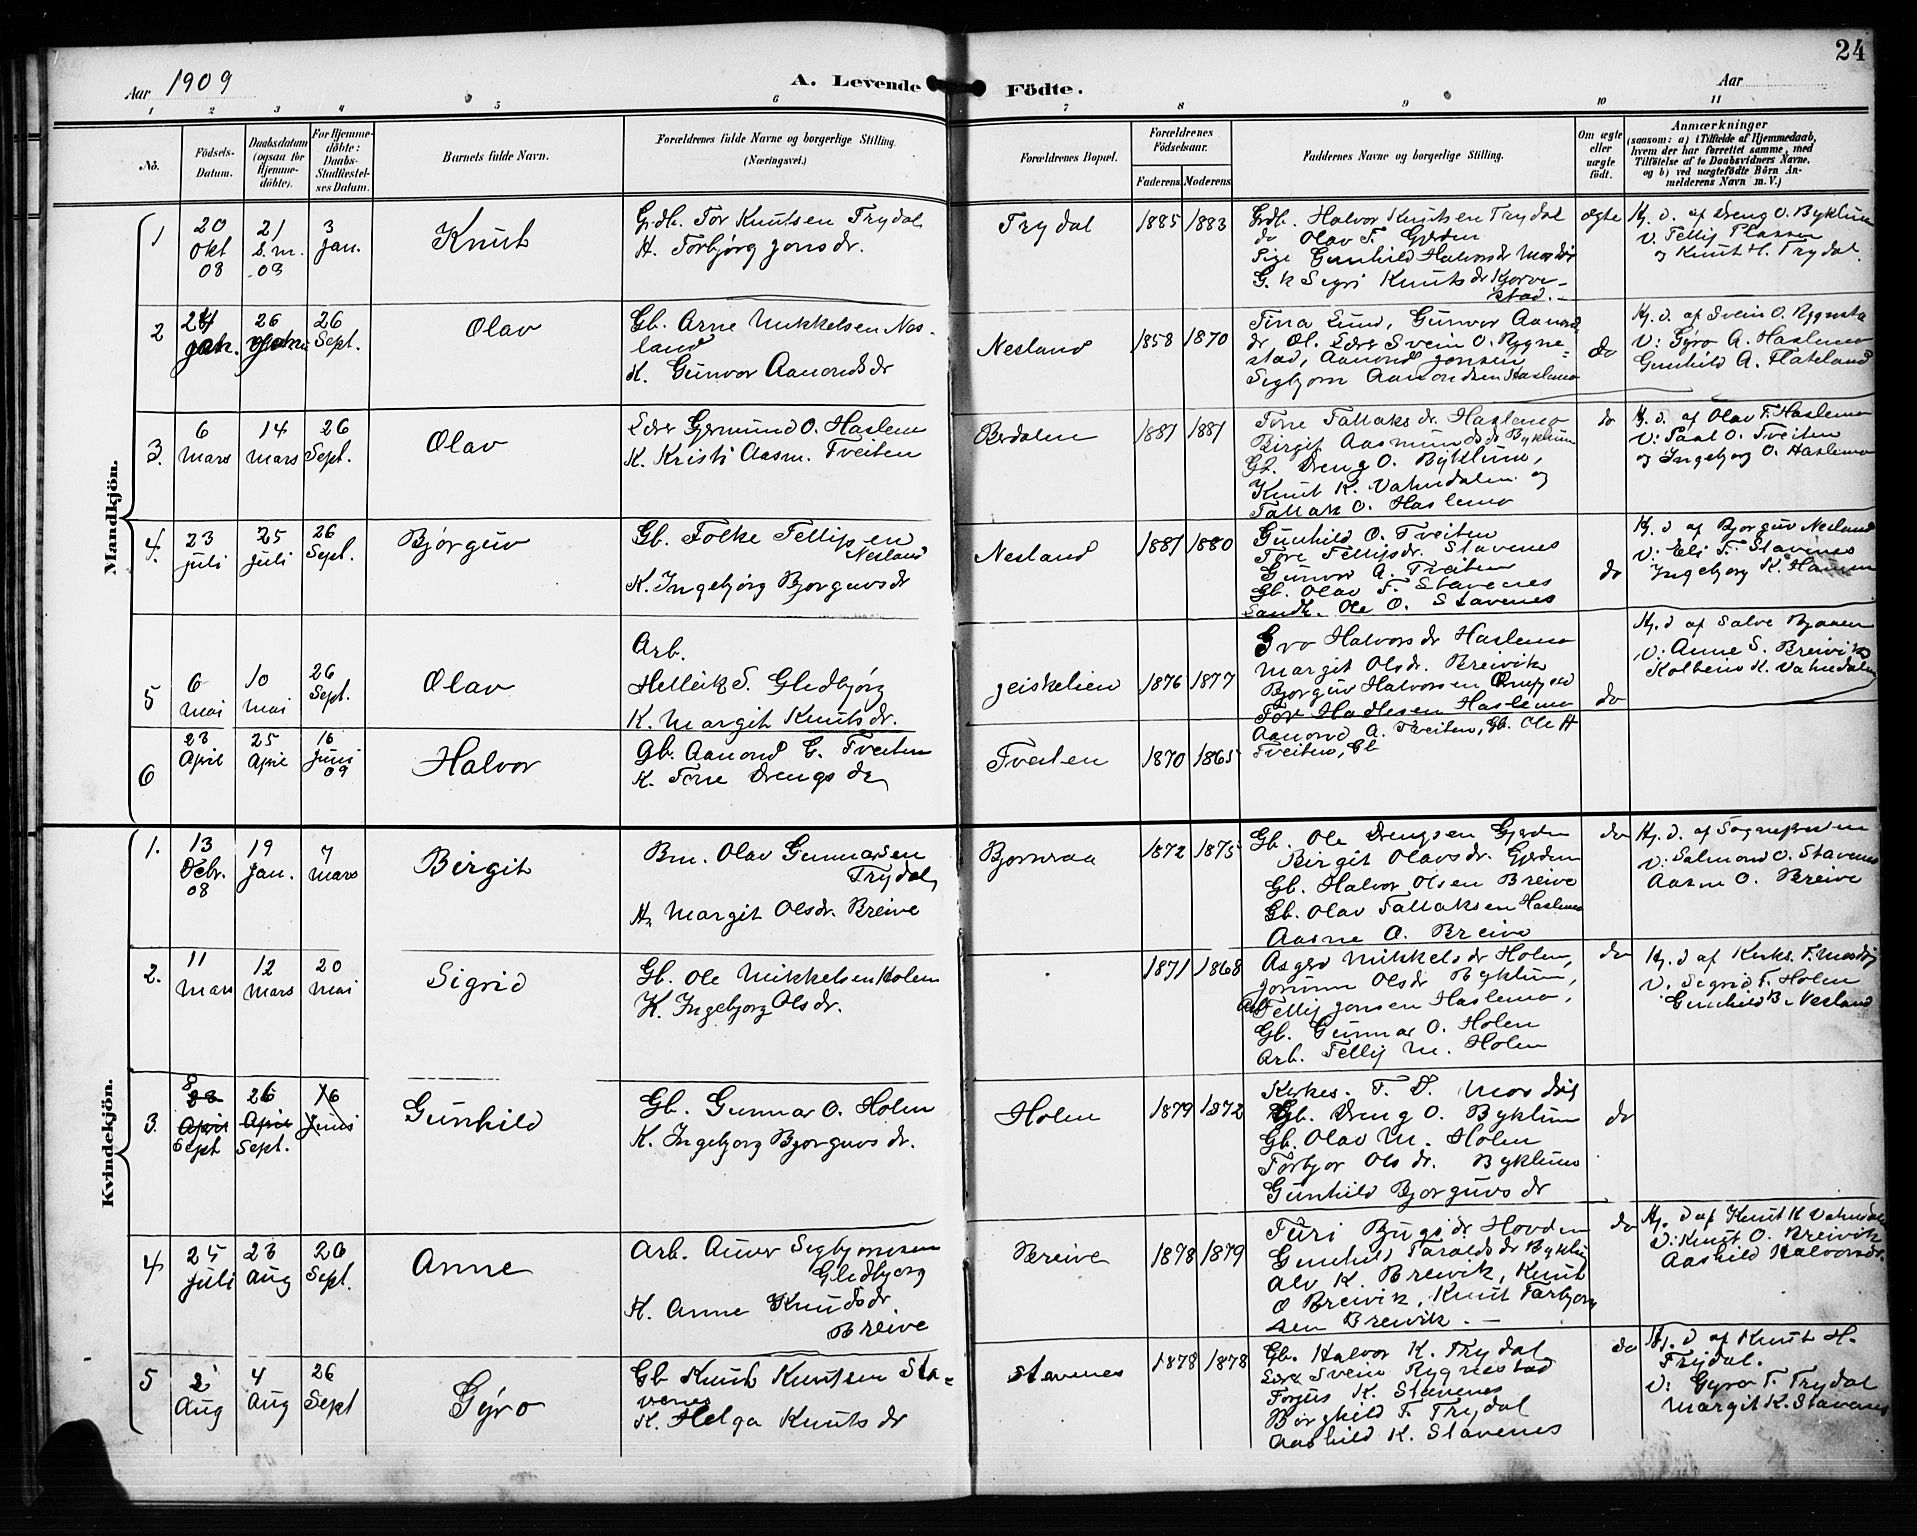 24
Aar 1909
A. Levende Födte.
Aar
1 2 3 4 5 6 7 8 9 10 11
No.
Födsels-Datum.
Daabsdatum (ogsaa for Hjemme-döbte).
For Hjemme-döbte: Daabs-Stadfæstel-ses Datum.
Barnets fulde Navn.
Forældrenes fulde Navne og borgerlige Stilling. (Næringsvei.)
Forældrenes Bopæl.
Forældrenes Födselsaar.
Faderens. Moderens.
Faddernes Navne og borgerlige Stilling.
Om ægte eller uægte födt.
Anmærkninger
(saasom: a) i Tilfælde af Hjemmedaab, hvem der har forrettet samme, med Tilföielse af to Daabsvidners Navne, og b) ved uægtefödte Börn An-melderens Navn m. V.)
Mandkjön.
1
20 Okt 08
21 s.m. 08
3 Jan.
Knut
Grdb. Tor Knutsen Trydal
H. Torbjørg Jonsdr.
Trydal
1885 1883
Grdb. Halvor Knutsen Trydal
do Olav T. Gjerden
Pige Gunhild Halvorsdr Mosdøl
G. k Sigri Knutsdr Kjorve-
stad. -
ægte
Hj. d. af Dreng O. Byklum
V. Tellef Plassen
og Knut H. Trydal.
2
24 Jan.
26
26 Sept.
Olav
Gb. Arne Mikkelsen Nes-
land
K. Gunvor Aanonds dr
Nesland
1858 1870
Tina Lund, Gunvor Aanonds
dr, Ol. Lærer Svein O. Rygne-
stad, Aanond Jonsen
Sigbjørn Aanondsen Haslemo
do
Hj. d. af Svein O. Rygnestad
V: Gyro A. Haslemo
Gunhild A. Flateland
3.
6 Mars
14 Mars
26 Sept.
Olav
Lærer Gjermund O. Haslemo
K. Kristi Aasm. Tveiten
Berdalen
1881 1881
Torre Tallaks dr. Haslemo
Birgit Aasmundsdr Byklum
Gb. Dreng O. Byklum,
Knut K. Vatnedalen og
Tallak O. Haslemo
do
Hj. d. af Olav T. Haslemo
V: Paal O. Tveiten
og Ingebjorg O. Haslemo
4.
23 Juli
25 Juli
26 Sept.
Bjørguv
Gb. Folke Tellefsen
Nesland
K. Ingebjørg Bjorguvs dr
Nesland
1881 1880
Gunhild O. Tveiten
Tore Tellefsdr. Stavenes
Gunvor A. Tveiten
Gb. Olav T. Stavenes
Landh. Ole O. Stavenes
do
Hj. d af Bjorguv Nesland
V: Eli T. Stavenes
Ingebjorg K.
5
6 Mai
10 Mai
26 Sept.
Olav
Arb.
Helleik S. Gledbjørg
K. Margit Knutsdr.
Jeiskelien
1876 1877
Gro Halvorsdr Haslemo
Margit Olsdr. Breivik
Bjorguv Halvorsen
Tor Hadlesen Haslemo
do
Hj. d af Salve Bjaaen
V: Anne S. Breivik
Kolbein K. Vatnedalen
6
23 April
25 April
16 Juni 09
Halvor
Gb. Aanond G. Tveiten
K. Torre Drengs dr
Tveiten
1870 1865
Aanond A. Tveiten, Gb. Ole H
Tveiten, Gb
Kvindekjön.
1.
13 Debr. 08
19 Jan.
7 Mars
Birgit
Bm. Olav Gunnarsen
Trydal
H. Margit Olsdr. Breive
Bjornraa
1872 1875
Gb. Ole Drengsen Gjerden
Birgit Olavsdr. Gjerden
Gb. Halvor Olsen Breive
Gb. Olav Tallaksen Haslemo
Aasne O. Breive
do
Hj. d. af Sognepresten
V: Salmond O. Stavenes
Aasne O. Breive
2.
11 Mars
12 Mars
20 Mai
Sigrid
Gb. Ole Mikkelsen Holen
K. Ingebjorg Olsdr.
1871 1868
Asgerd Mikkelsdr Holen,
Jorunn Olsdr Byklum,
Tellef Jonsen Haslemo,
Gb. Gunnar O. Holen
Arb. Tellef M. Holen
do
Hj. d af Kirkes. T. Mosdøl
V. Sigrid T. Holen
Gunhild B. Nesland
3.
8 23 April Sept
26 April Sept.
16 Juni
Gunhild
Gb. Gunnar O. Holen
K. Ingebjorg Bjorguvs dr.
Holen
1879 1872
Kirkes. T. D. Mosdøl
Gb. Dreng O. Byklum
Gb. Olav M. Holen
Torbjor Ols dr. Byklum
Gunhild Bjorguvs dr
do
4
25 Juli
23 Aug
26 Sept.
Anne
Arb. Aanor Sigbjornsen
Gledbjorg
K. Anne Knudsdr.
Breive
Breive
1878 1879
Turi Bugi dr. Hovden
Gunhild Taraldsdr Byklum
Alv K. Breivik, Knut
O Breivik, Knut Tarbjorn
sen Breivik. -
do
Hj. d af Knut K Vatnedal
V: Knut O. Breivik
Aashild Halvorsdr.
5
2 Aug
4 Aug
26 Sept
Gyro
Gb Knut Knutsen Sta-
venes
K. Helga Knuts dr
Stavenes
1878 1878
Gb. Halvor K. Trydal
Lær. Svein Rygnestad
Torjus K. Stavenes
Borghild T. Trydal
Aashild K. Stavenes
do
Hj. d af Knut H.
Trydal.
V: Gyro T. Trydal
Margit K. Stavenes